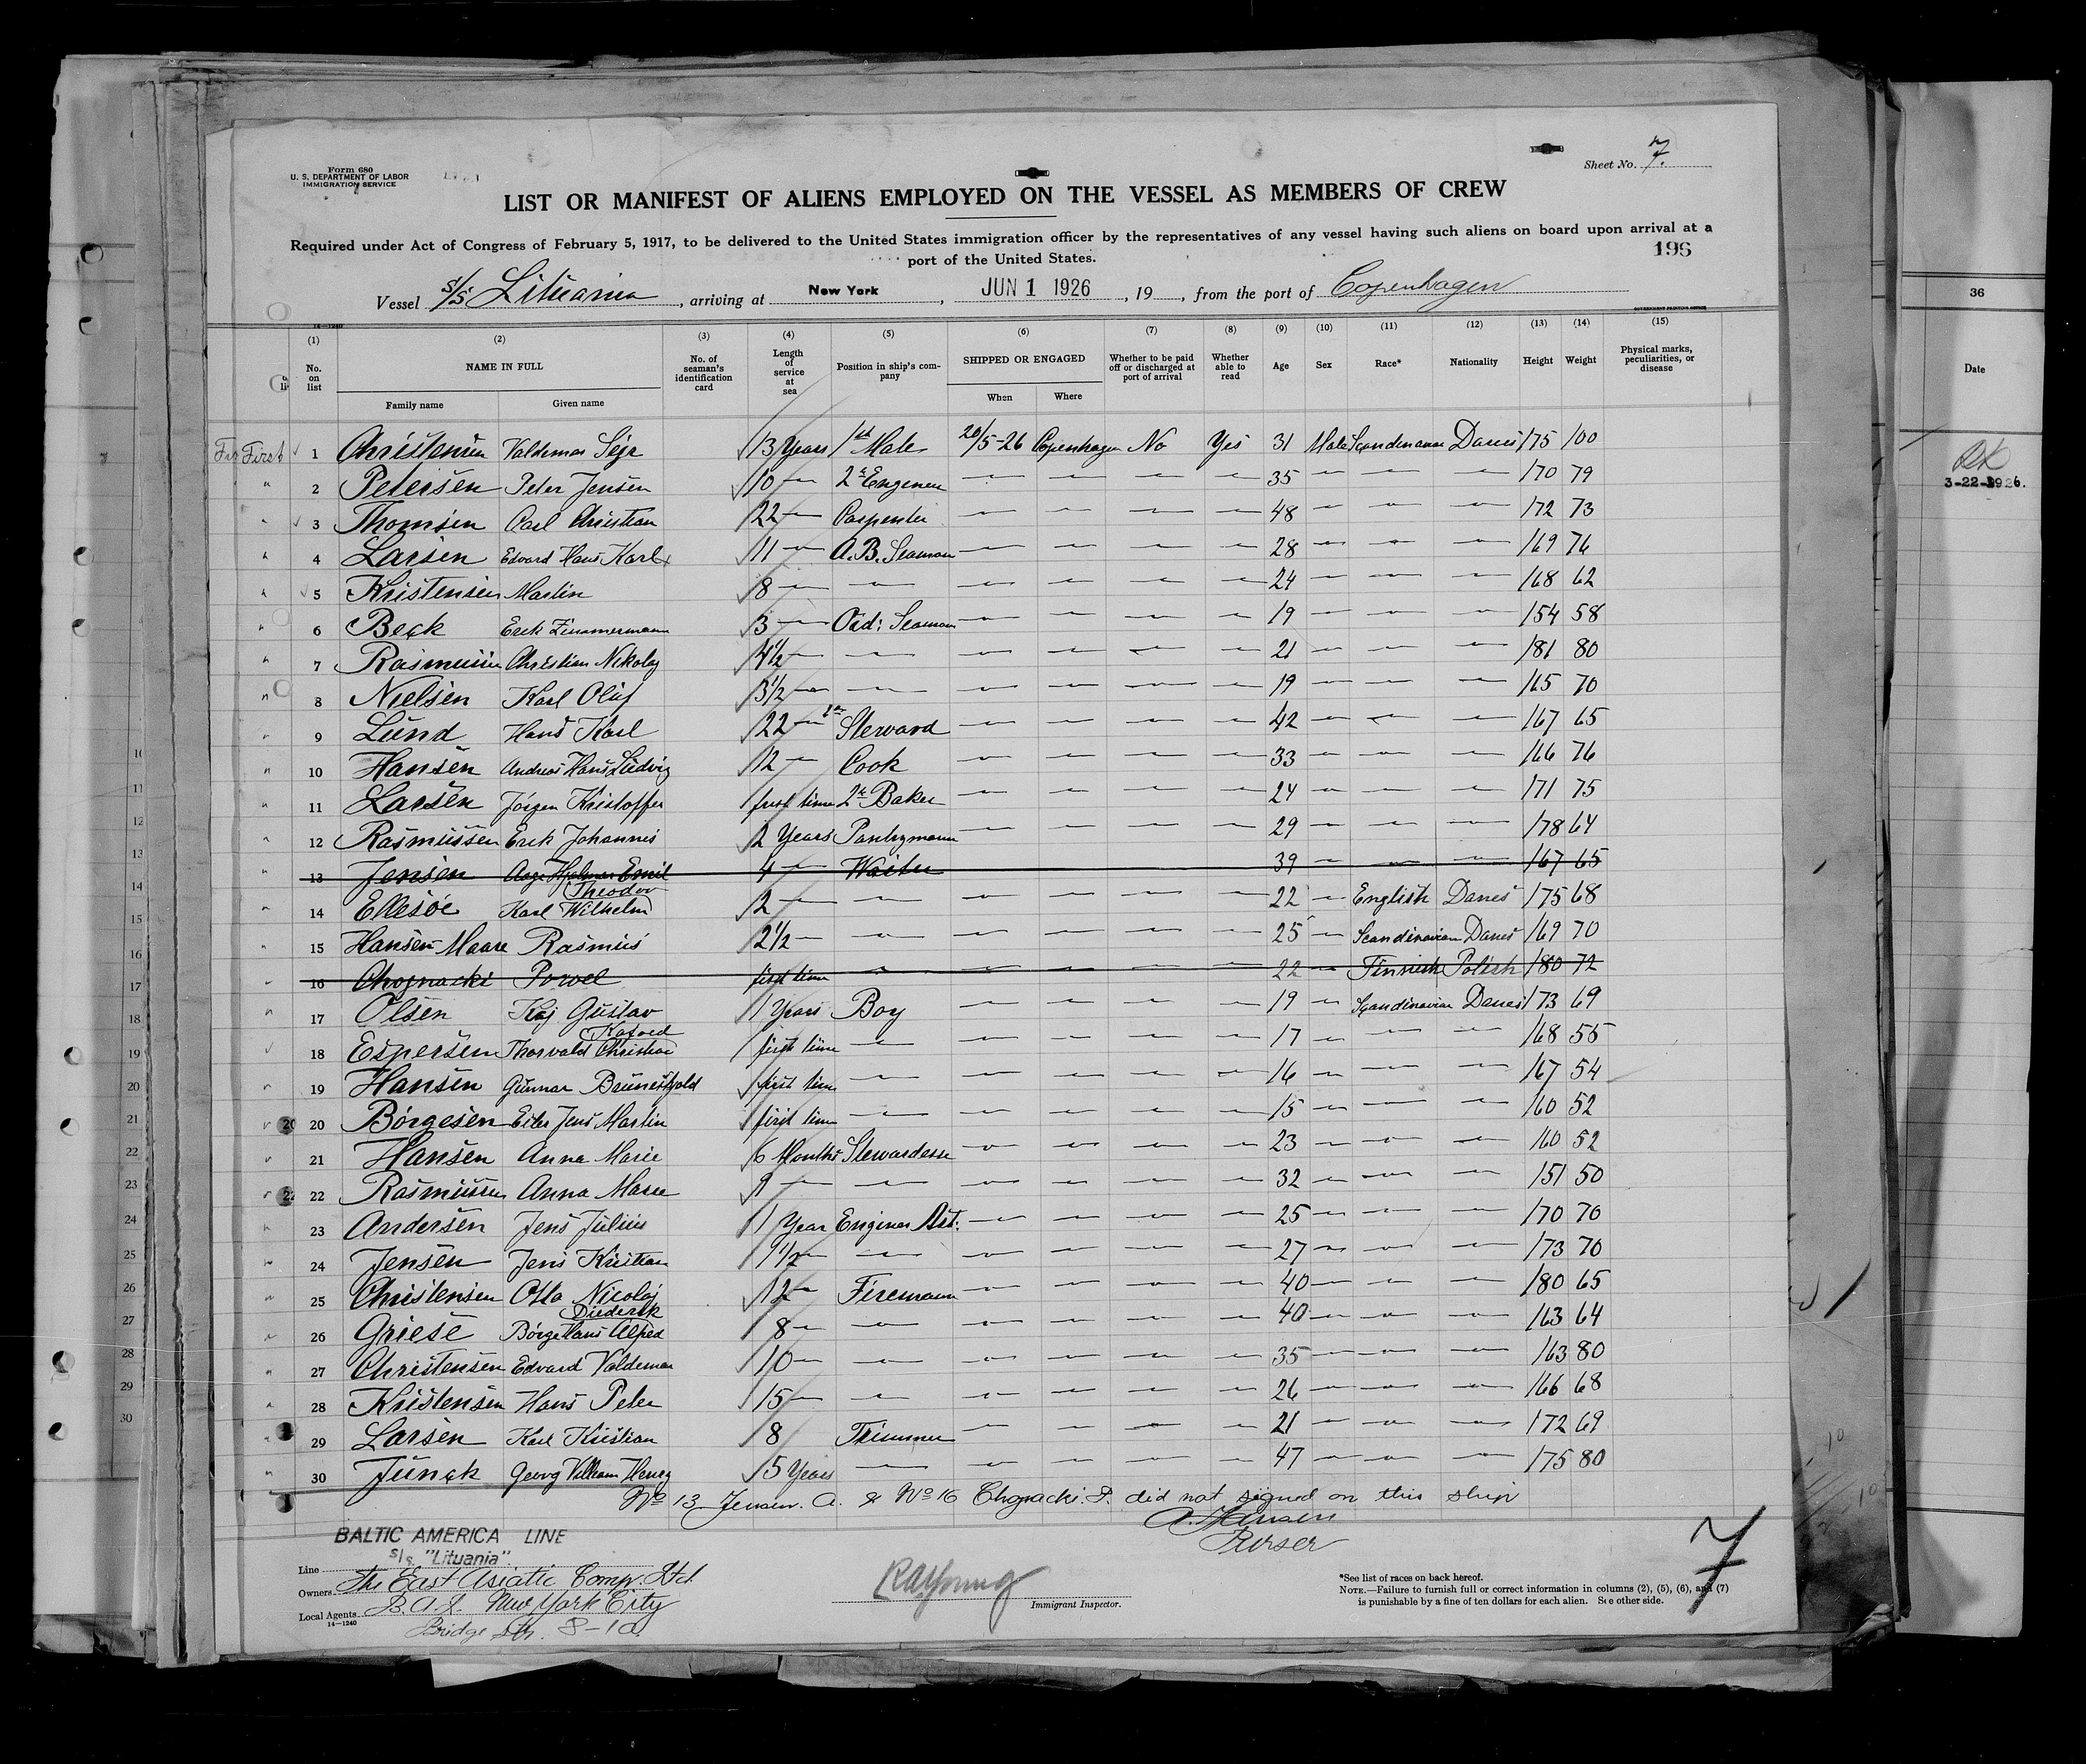 Form 680
U. S. DEPARTMENT OF LABOR
IMMIGRATION SERVICE
Sheet No. 7.
LIST OR MANIFEST OF ALIENS EMPLOYED ON THE VESSEL AS MEMBERS OF CREW
Required under Act of Congress of February 5, 1917, to be delivered to the United States immigration officer by the representatives of any vessel having such aliens on board upon arrival at a
port of the United States.
196
Vessel S/S Lituania, arriving at New York, JUN 1 1926, 19 , from the port of Copenhagen
14-1240
GOVERNMENT PRINTING OFFICE
(1) (2) (3) (4) (5) (6) (7) (8) (9) (10) (11) (12) (13) (14) (15)
No. on list NAME IN FULL No. of seaman's identification card Length of service at sea Position in ship's company SHIPPED OR ENGAGED Whether to be paid off or discharged at port of arrival Whether able to read Age Sex Race* Nationality Height Weight Physical marks, peculiarities, or disease
Family name Given name When Where
First 1 Christensen Valdemar Sejr 13 Years 1st Mate 20/5-26 Copenhagen No Yes 31 Male Scandinavian Danes 175 100
" 2 Petersen Peter Jensen 10 — 2d Engineer — — — — 35 — — — 170 79
" 3 Thomsen Carl Christian 22 — Carpenter — — — — 48 — — — 172 73
" 4 Larsen Edvard Hans Karl 11 — A.B. Seaman — — — — 28 — — — 169 76
" 5 Kristensen Martin 8 — — — — — — 24 — — — 168 62
" 6 Beck Erik Zimmermann 3 — Ord: Seaman — — — — 19 — — — 154 58
" 7 Rasmussen Christian Nikolaj 4½ — — — — — — 21 — — — 181 80
" 8 Nielsen Karl Oluf 3½ — — — — — — 19 — — — 165 70
" 9 Lund Hans Karl 22 — Steward — — — — 42 — — — 167 65
" 10 Hansen Andreas Hans Ludvig 12 — Cook — — — — 33 — — — 166 76
" 11 Larsen Jörgen Kristoffer first time 2d Baker — — — — 24 — — — 171 75
" 12 Rasmussen Erik Johannes 2 Years Pantrymann — — — — 29 — — — 178 64
" 13 Jensen Aage Hjalmar Emil 4 — Waiter 39 — — — 167 65
" 14 Ellesöe Karl Theodor Wilhelm 2 — — — — — — 22 — English Danes 175 68
" 15 Hansen-Maare Rasmus 2½ — — — — — — 25 — Scandinavian Danes 169 70
" 16 Chojnacki Powel first time — — — — — 22 — Finnish Polish 180 72
" 17 Olsen Kaj Gustav 1 Years Boy — — — — 19 — Scandinavian Danes 173 69
" 18 Espersen Thorvald Christian first time — — — — — 17 — — — 168 55
" 19 Hansen Gunnar first time — — — — — 16 — — — 167 54
" 20 Börgesen Eiler Jens Martin first time — — — — — 15 — — — 160 52
" 21 Hansen Anna Marie 6 Months Stewardesse — — — — 23 — — — 160 52
" 22 Rasmussen Anna Marie 9 — — — — — — 32 — — — 151 50
" 23 Andersen Jens Julius 1 Year Engineer Ast. — — — — 25 — — — 170 70
" 24 Jensen Jens Kristian 1½ — — — — — — 27 — — — 173 70
" 25 Christensen Otto Nicolaj 12 — Firemann — — — — 40 — — — 180 65
" 26 Griese Börge Hans Diederik Alfred 8 — — — — — — 40 — — — 163 64
" 27 Christensen Edvard Valdemar 10 — — — — — — 35 — — — 163 80
" 28 Kristensen Hans Peter 15 — — — — — — 26 — — — 166 68
" 29 Larsen Karl Kristian 8 Trimmer — — — — 21 — — — 172 69
" 30 Junak Georg Villiam Henry 5 Years — — — — — 47 — — — 175 80
No 13 Jensen. A. & No 16 Chojnacki. P. did not signed on this ship
A. Hansen
Purser
BALTIC AMERICA LINE
S/S. "Lituania".
Line
Owners The East Asiatic Comp. Ltd.
Local Agents B.A.L. New York City
Bridge Str. 8-10.
14-1240
RAYoung
Immigrant Inspector.
*See list of races on back hereof.
NOTE.—Failure to furnish full or correct information in columns (2), (5), (6), and (7)
is punishable by a fine of ten dollars for each alien. See other side.
7
36
Date
3-22-1926.